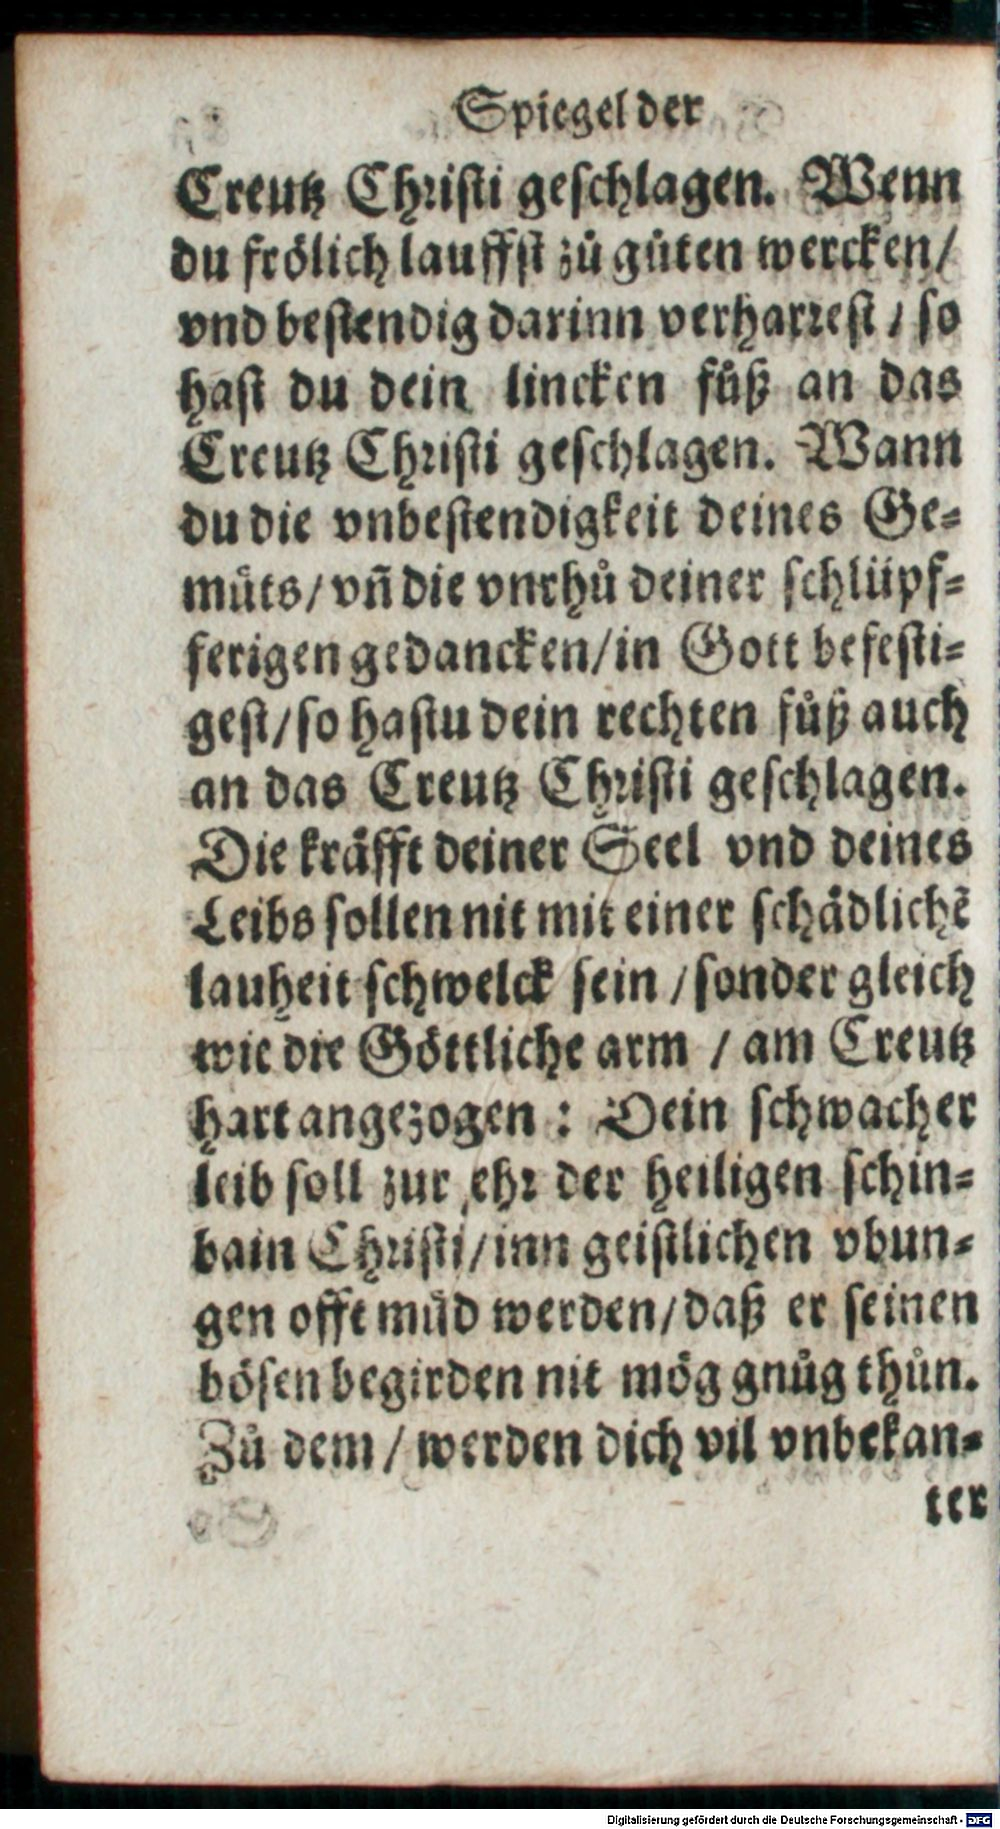 Spiegel der
Creutz Christi geschlagen. Wenn
du frölich lauffst zů gůten wercken/
vnd bestendig darinn verharrest / so
hast du dein lincken fůß an das
Creutz Christi geschlagen. Wann
du die vnbestendigkeit deines Ge=
müts/ vñ die vnrhů deiner schlüpf=
ferigen gedancken/in Gott befesti=
gest/so hastu dein rechten fůß auch
an das Creutz Christi geschlagen.
Die kräfft deiner Seel vnd deines
Leibs sollen nit mit einer schädlichẽ
lauheit schwelck sein /sonder gleich
wie die Göttliche arm / am Creutz
hart angezogen : Dein schwacher
leib soll zur ehr der heiligen schin=
bain Christi/inn geistlichen vbun=
gen offt müd werden/daß er seinen
bösen begirden nit mög gnůg thůn.
Zů dem / werden dich vil vnbekan=
ter
Digitalisierung gefördert durch die Deutsche Forschungsgemeinschaft - DFG